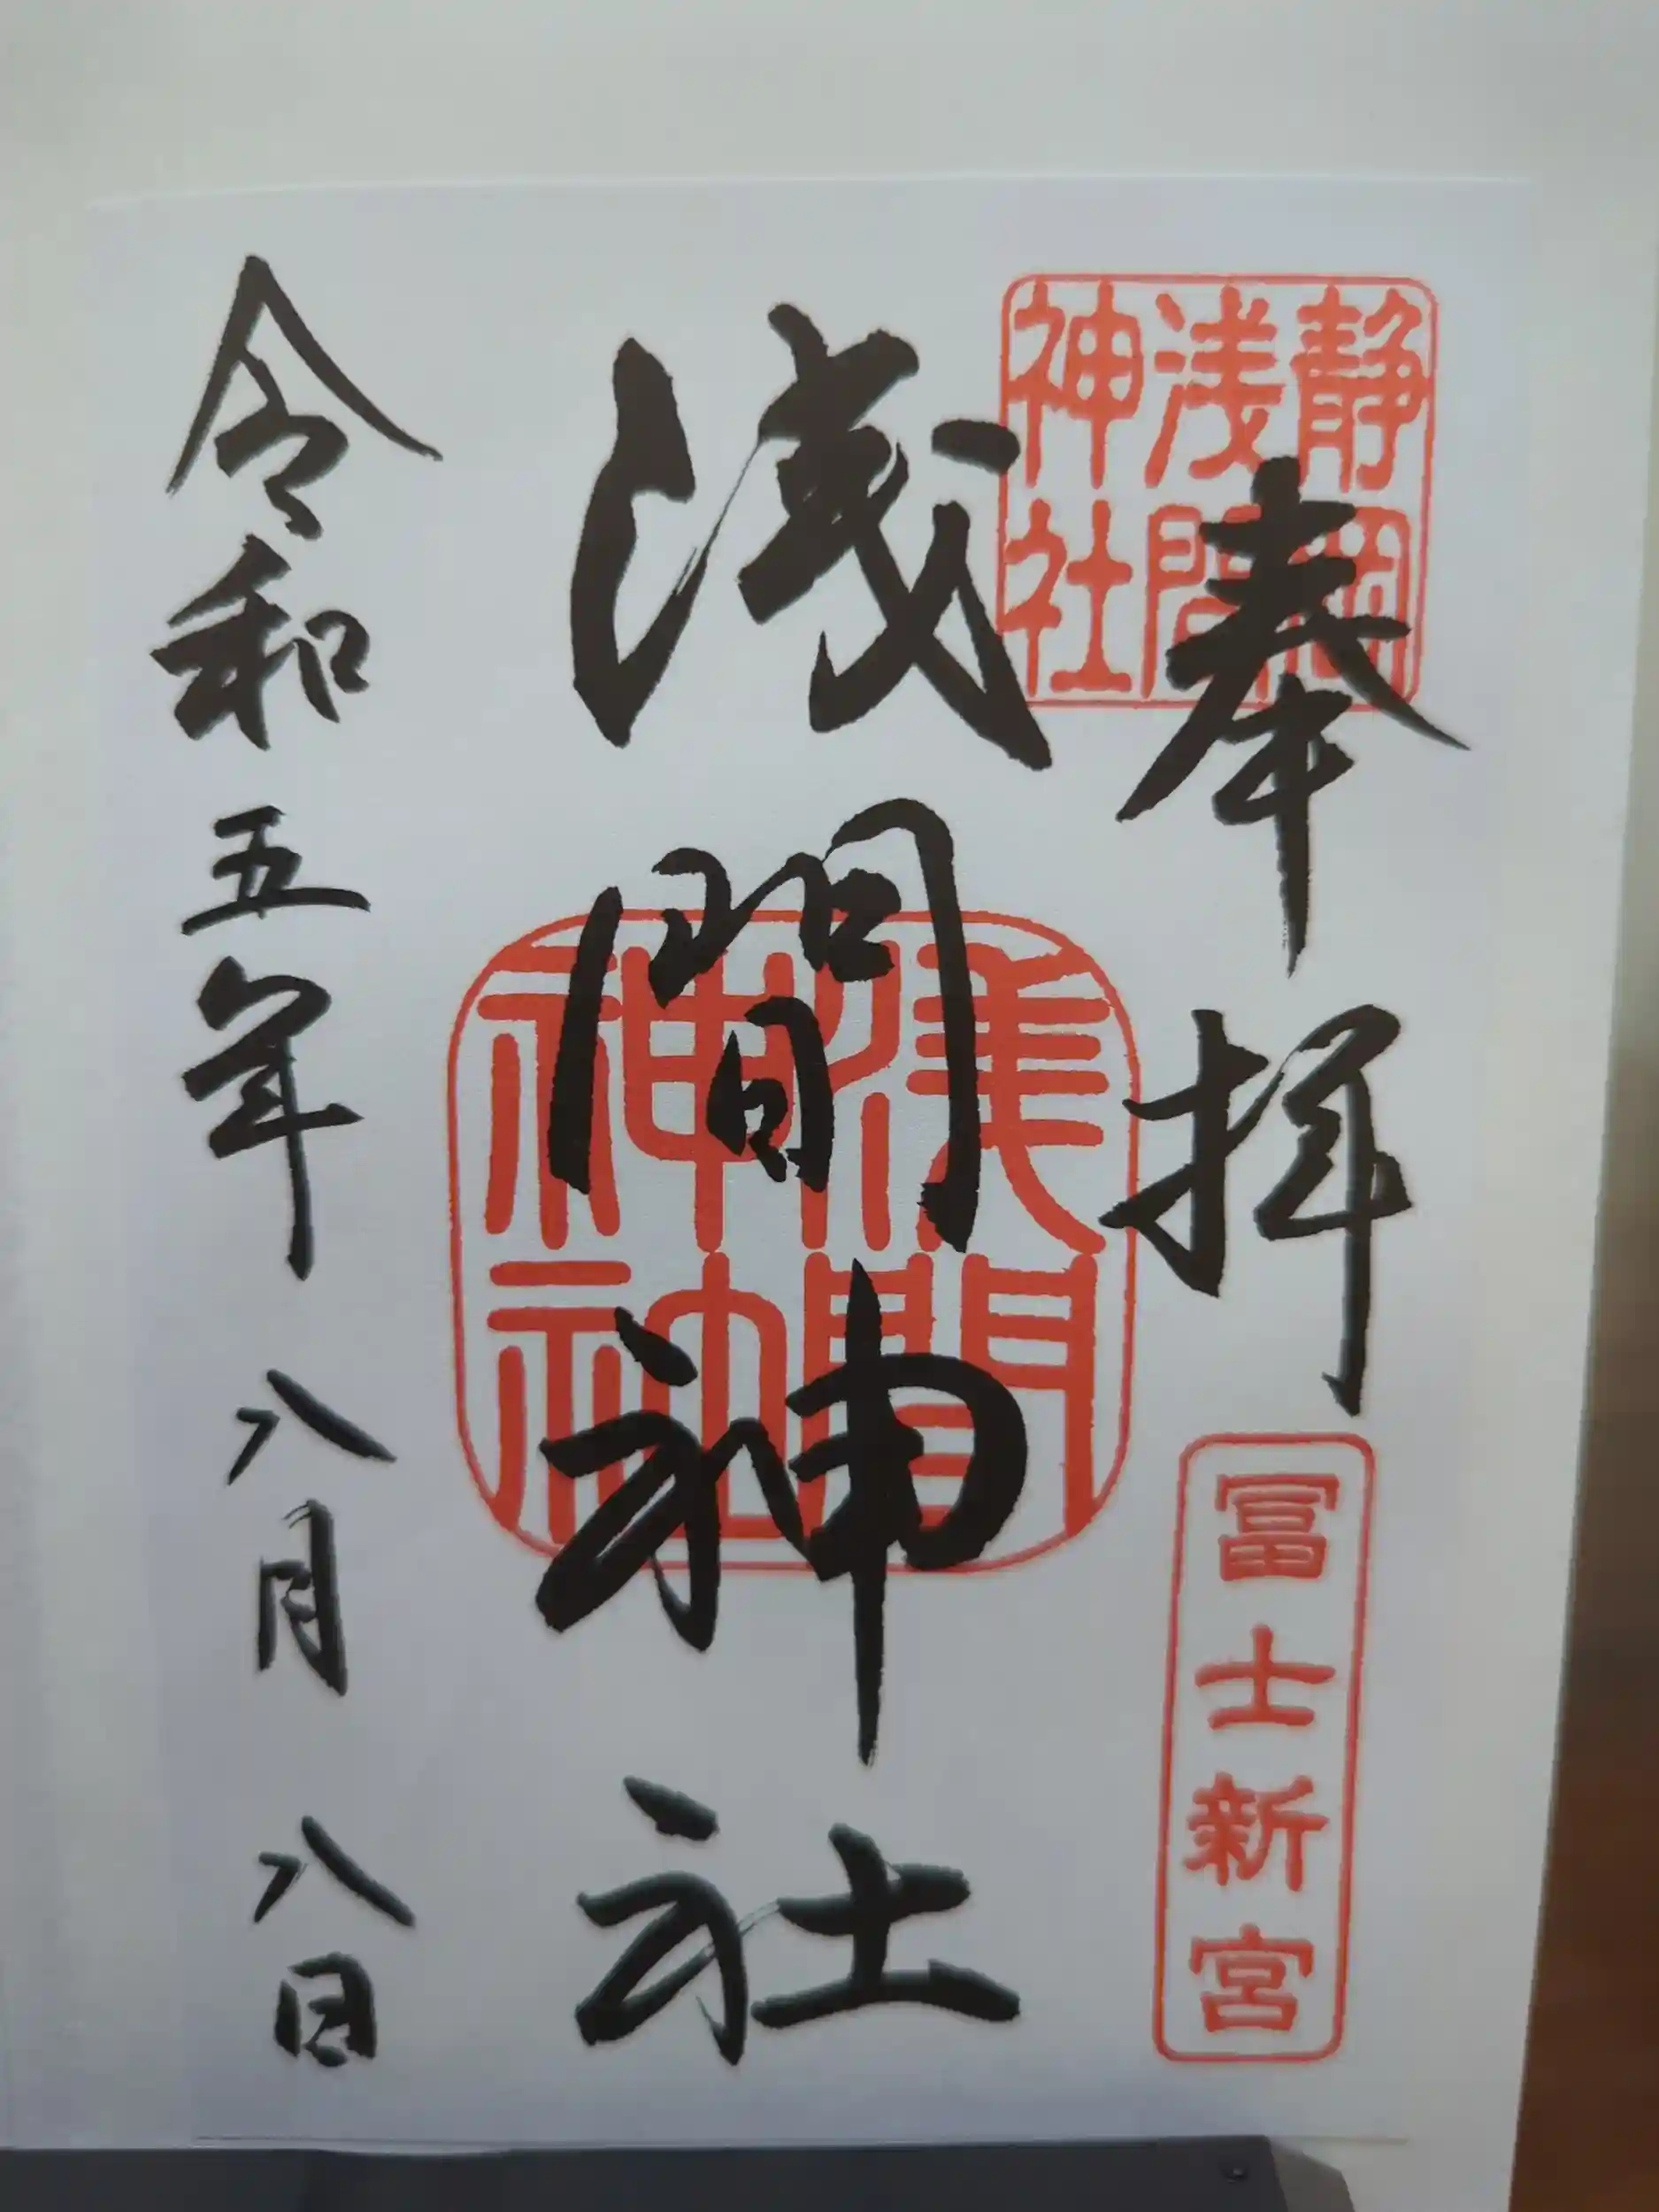 奉拝
静岡
浅間
神社
冨士新宮
浅間神社
浅間
神社
令和五年八月八日